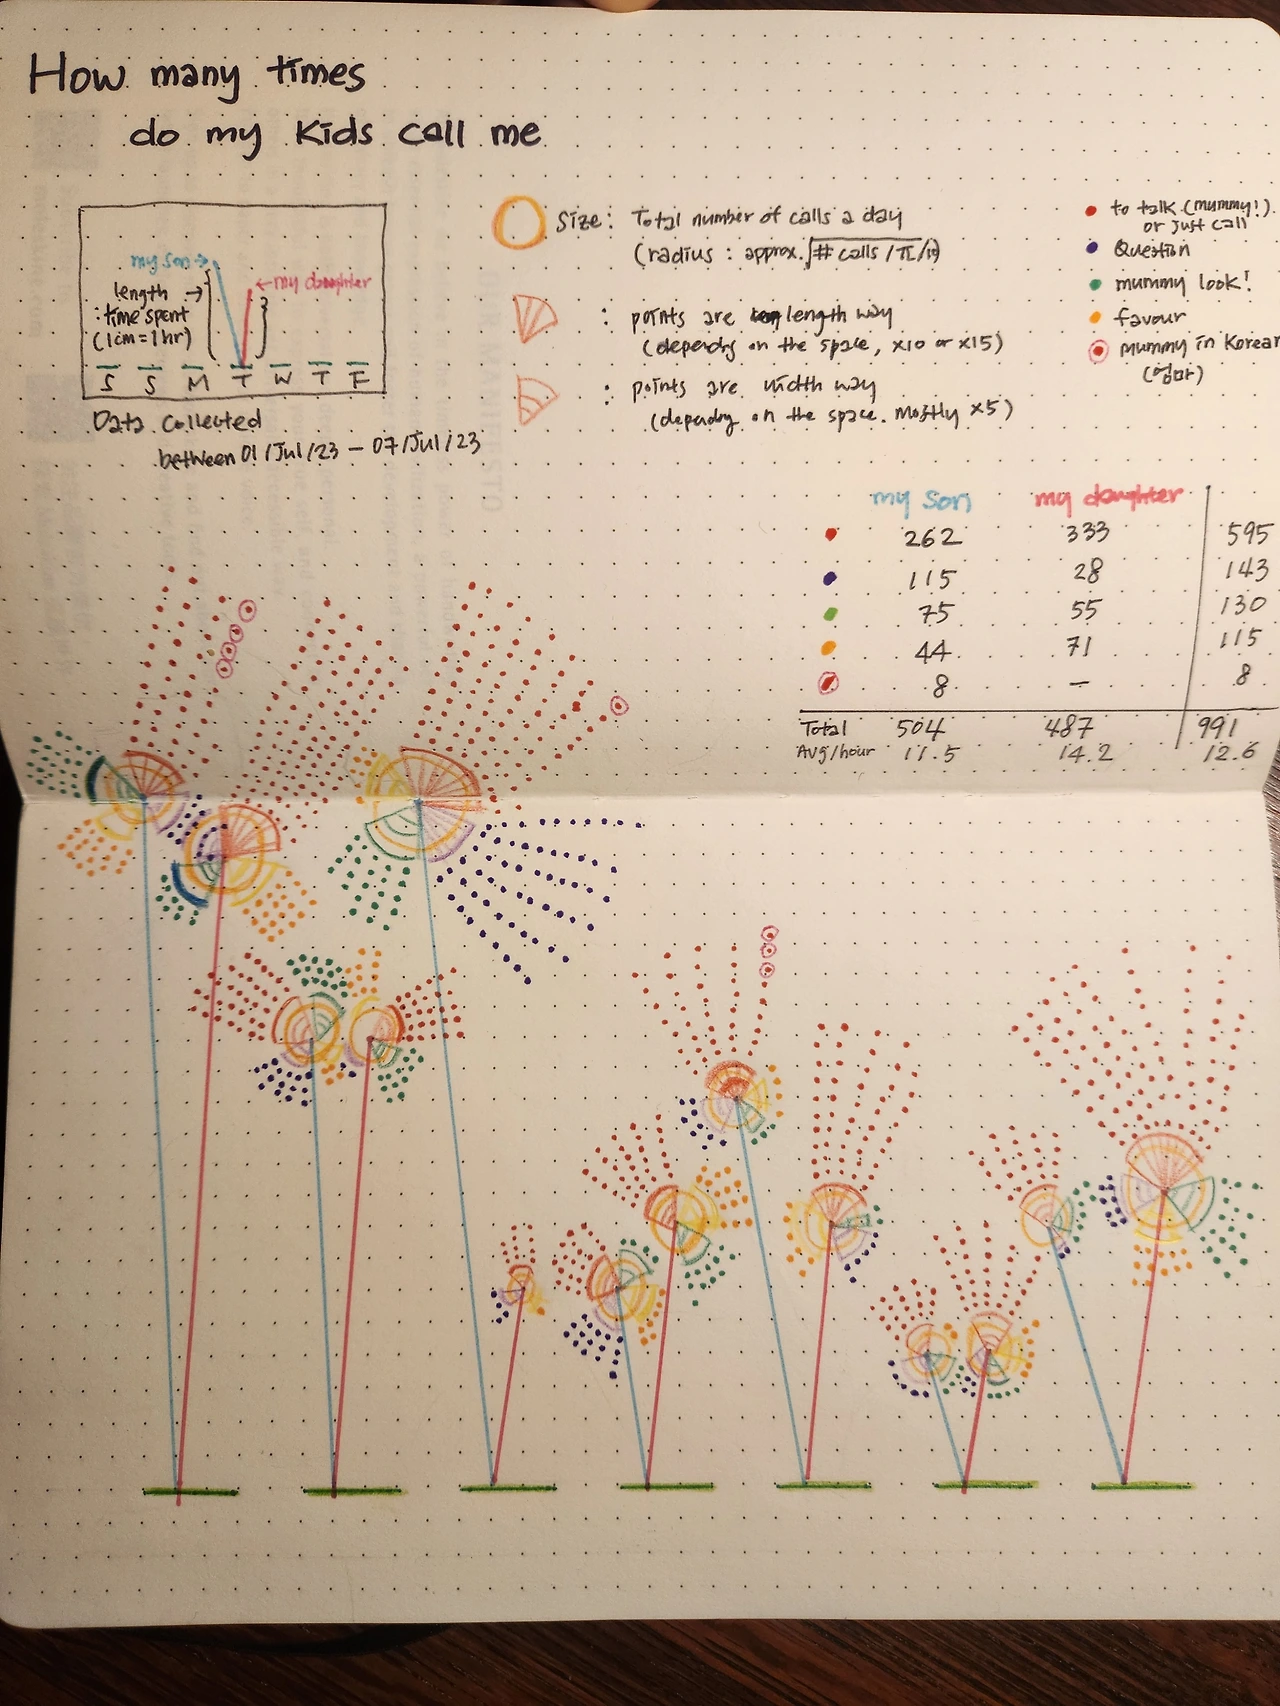 How many times
do my kids call me
my son →
length →
: time spent
(1cm = 1hr)
← my daughter
S S M T W T F
Data collected
between 01/Jul/23 – 07/Jul/23
Size : Total number of calls a day
(radius : approx. √# calls / π / 10)
: points are length way
(dependg on the space, x10 or x15)
: points are width way
(dependg on the space. mostly x5)
to talk (mummy!)
or just call
Question
mummy look!
favour
mummy in Korean
(엄마)
my son my daughter
262 333 595
115 28 143
75 55 130
44 71 115
8 – 8
Total 504 487 991
Avg/hour 11.5 14.2 12.6